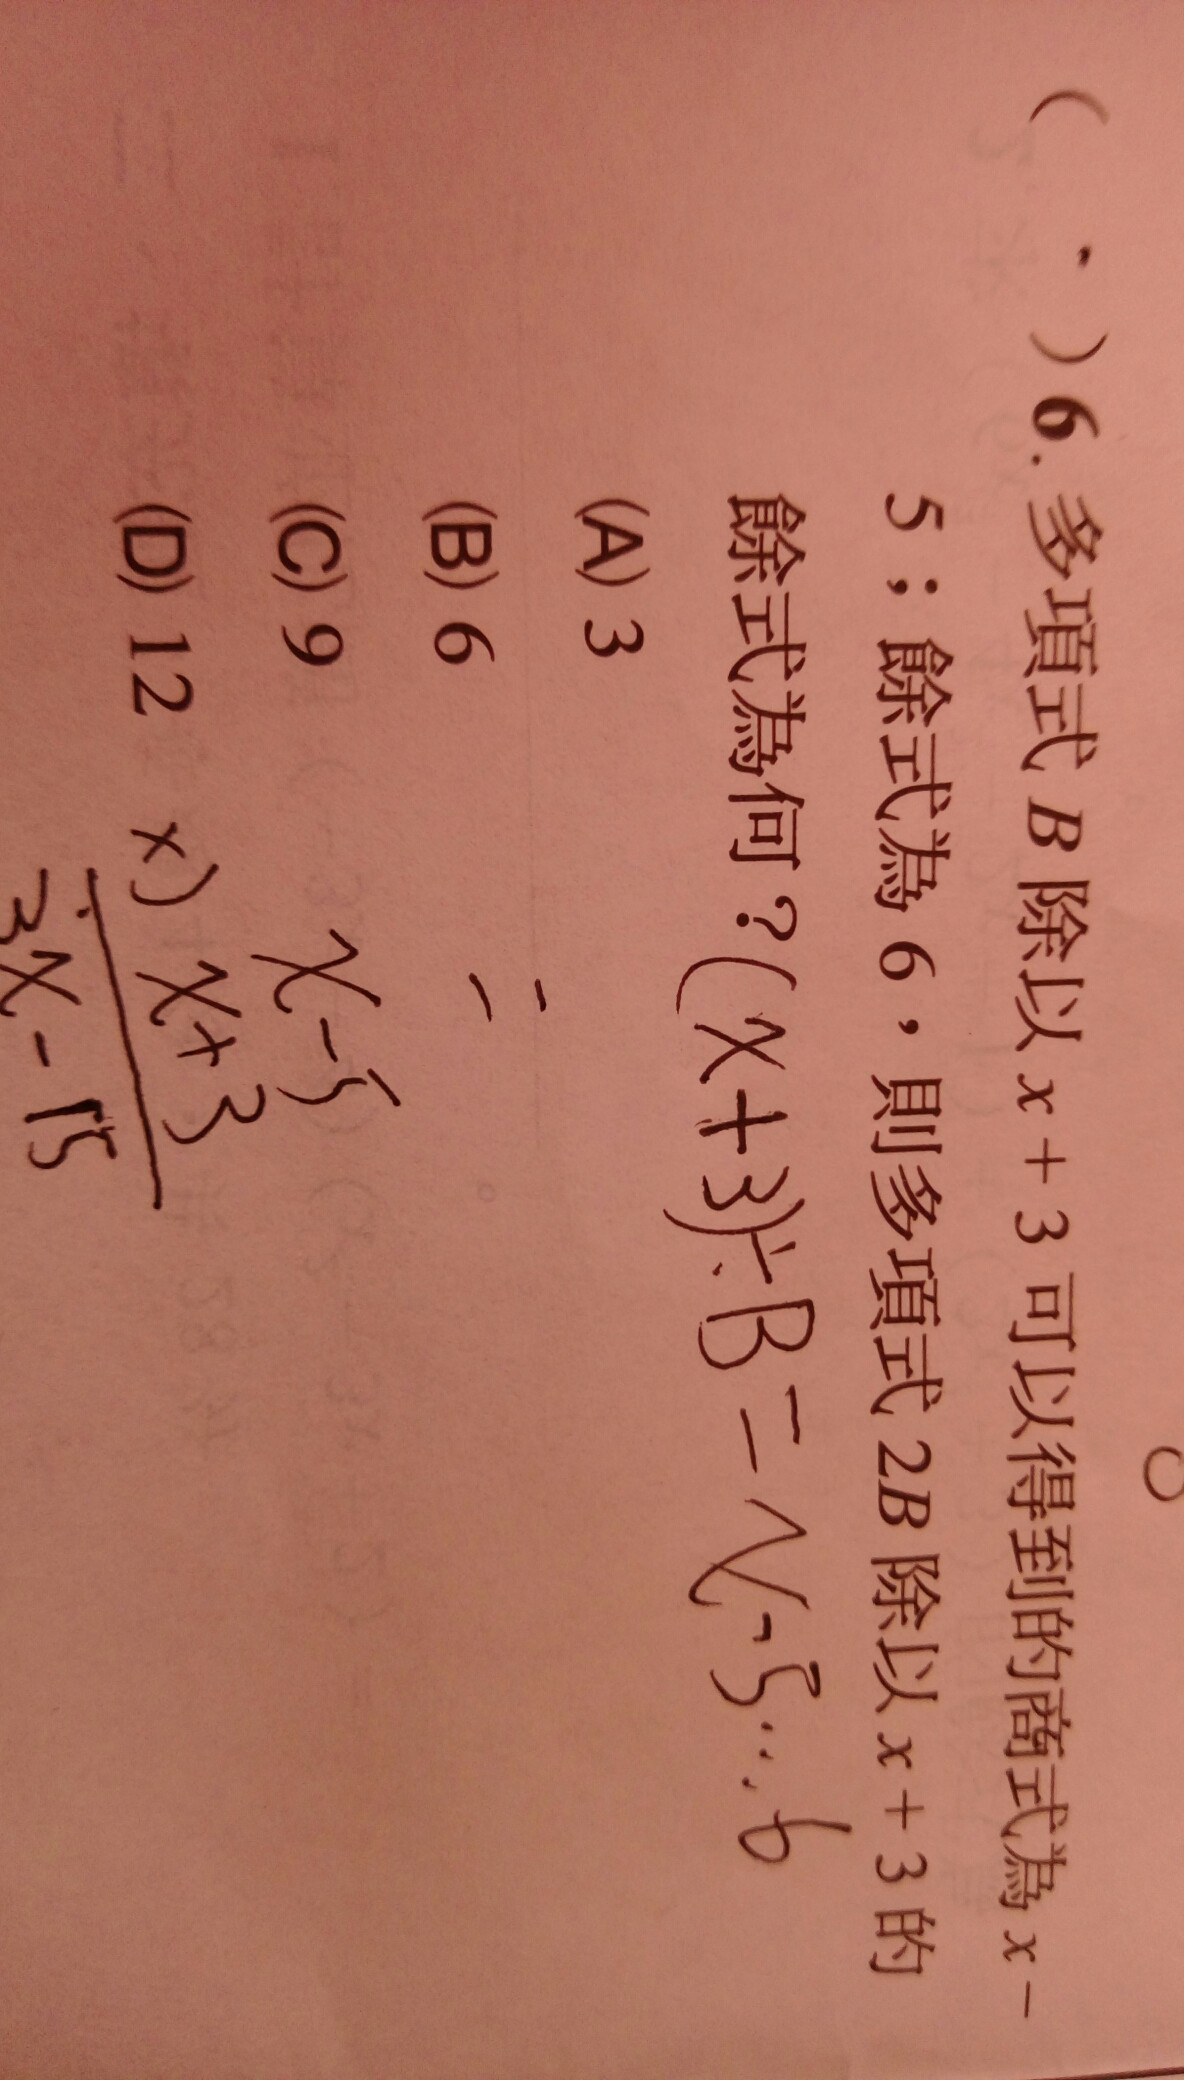 ( 、 ) 6. 多項式 B 除以 x + 3 可以得到的商式為 x −
5；餘式為 6，則多項式 2B 除以 x + 3 的
餘式為何？(x+3)÷B=x-5...6
(A) 3
(B) 6 =
(C) 9 x-5
(D) 12 x) x+3
3x-15